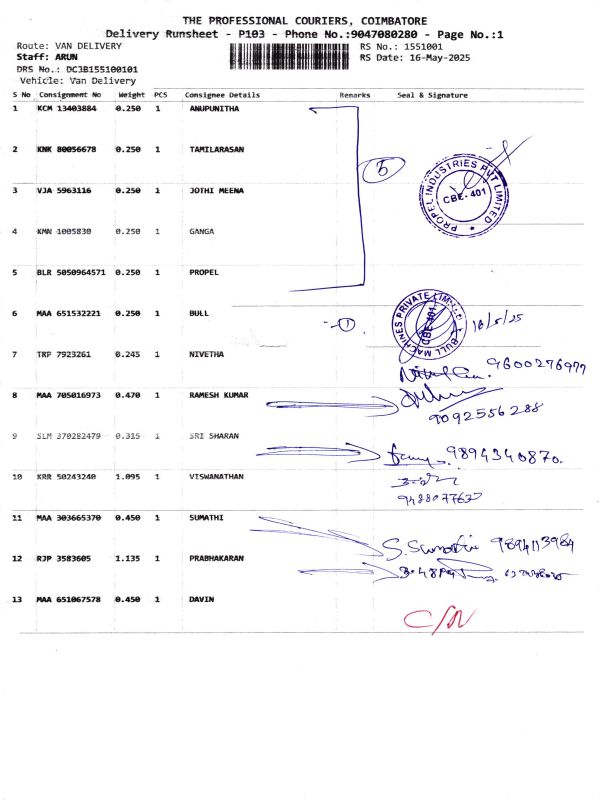 THE PROFESSIONAL COURIERS, COIMBATORE
Delivery Runsheet - P103 - Phone No.:9047080280 - Page No.:1
Route: VAN DELIVERY RS No.: 1551001
Staff: ARUN RS Date: 16-May-2025
DRS No.: DCJB155100101
Vehicle: Van Delivery
S No Consignment No Weight PCS Consignee Details Remarks Seal & Signature
1 KCM 13403884 0.250 1 ANUPUNITHA
2 KNK 80056678 0.250 1 TAMILARASAN
5
PROPEL INDUSTRIES PVT LIMITED
CBE-401
3 VJA 5963116 0.250 1 JOTHI MEENA
4 KMN 1005830 0.250 1 GANGA
5 BLR 5050964571 0.250 1 PROPEL
6 MAA 651532221 0.250 1 BULL
1
BULL MACHINES PRIVATE LIMITED
CBE-401
16/5/25
7 TRP 7923261 0.245 1 NIVETHA
9600276977
8 MAA 705016973 0.470 1 RAMESH KUMAR
9092556288
9 SLM 370282479 0.315 1 SRI SHARAN
9894340870.
10 KRR 50243240 1.095 1 VISWANATHAN
11 MAA 303665370 0.450 1 SUMATHI
S. Sumathi 9894113984
12 RJP 3583605 1.135 1 PRABHAKARAN
13 MAA 651067578 0.450 1 DAVIN
C/N